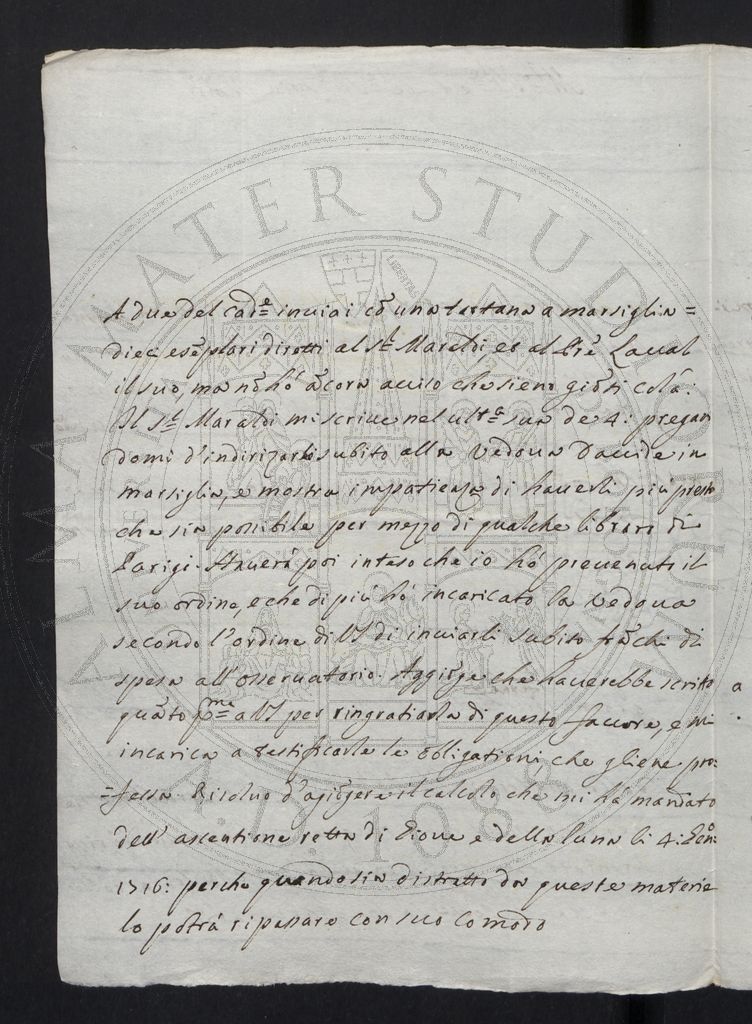 A due del cad.e inviai cō una tartana a marsiglia =
dieci esēplari diretti al S.r Maraldi et al Pr̄e Laval
il suo, ma nō hó ācora aviso che sieno giōti colá:
Il S.r Maraldi mi scrive nel ult.a sua de 4: pregan
domi d'indirizarli subito alla Vedova Davide in
marsiglia, e mostra impatienza di haverli piú presto
che sia possibile per mezzo di qualche libraro di
Parigi. Haverá poi inteso che io hó prevenuto il
suo ordine, e che di piú hó incaricato la Vedova
secondo l'ordine di VS di inviarli subito frāchi di
spesa all'osservatorio. Aggiūge che haverebbe scritto
quāto p.me a VS per ringratiarla di questo favore, e mi
incarica a testificarle le obligationi, che gliene pro:
=fessa. Risolvo d'agiūgere il calcolo che mi há mandato
dell' ascentione retta di Giove e della luna li 4: Gen.o
1716: perche quando sia distratto da queste materie
lo potrá ripassare con suo comodo
ALMA MATER STUDIORUM
A.D. 1088
LIBERTAS